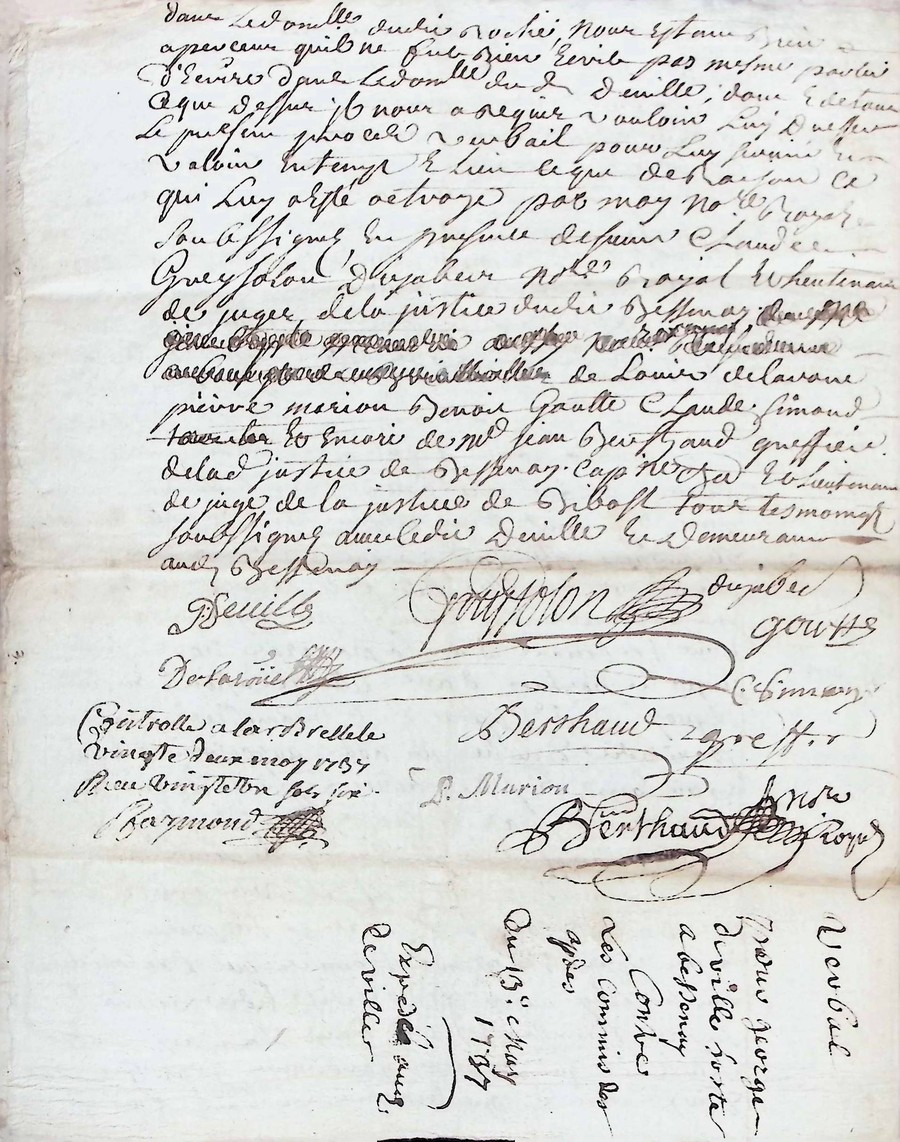 dans Ledomille dudit Roche, Nous Estant Bien
aperceur quil ne fut Rien Ecrit pas mesme parler
D'Ecrire dans Ledomille dud Deville, dont Et de tout
Ce que Dessus il nous a requis vouloir Luy Dresser
Le presem proces verbail pour Luy servir Et
valoir En temps Et Lieu Ce que de Raison Ce
qui Luy a Esté octroyé par moy No.re Royal
Soubssigné En presence de sieur Claude
Greysolon Dujabert No.re Royal Et Lieutenant
de juge de la justice dudit Bessenay
de Louis delaroue
pierre marion Benoit Goutte Claude Simond
Et Encore de M.e jean Berthaud greffier
de lad justice de Bessenay Et Lieutenant
de juge de la justice de Bibost tous tesmoins
soubssignes avec ledit Deville Et Demeurant
aud Bessenay
Deville Greysolon dujabert
goutte
Delaroüe C. Simond
Berthaud greffier
P. Marion
Berthaud no.re Royal
Controllé a Larbresle le
vingte deux may 1737
Reçu vingt sols six
Raymond
Verbal
pour george
deville hoste
a bessenay
Contre
Les Commis des
aydes
Du 13.e May
1737
Expédié aud
deville